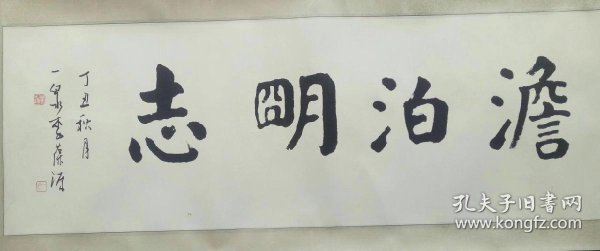 澹泊明志
丁丑秋月
一泉李葆源
孔夫子旧书网
www.kongfz.com